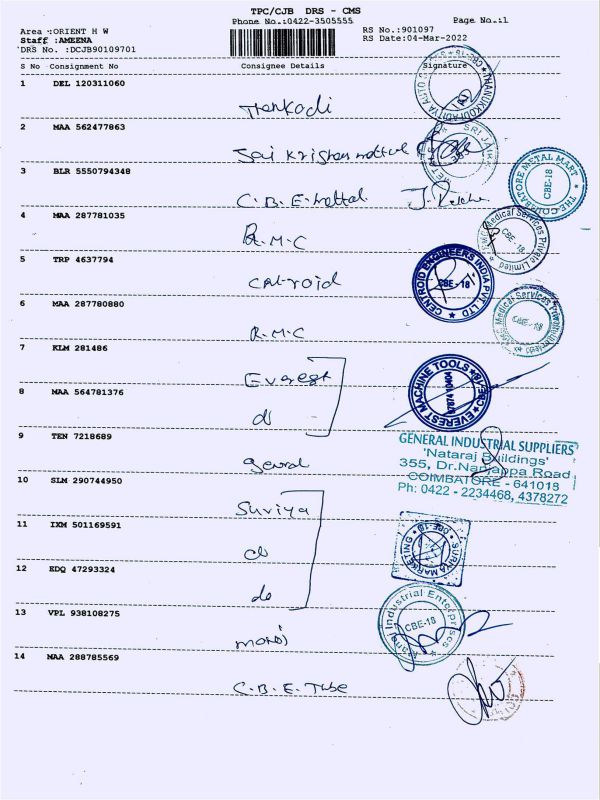 TPC/CJB DRS - CMS
Phone No.:0422-3505555
Page No.:1
Area :ORIENT H W
RS No.:901097
Staff :AMEENA
RS Date:04-Mar-2022
DRS No. :DCJB90109701
S No Consignment No Consignee Details Signature
1 DEL 120311060
2 MAA 562477863
Sai Krishna mettal
SRI JAIKR
METALS
3 BLR 5550794348
C.B.E. mettal
THE COIMBATORE METAL MART
CBE-18
4 MAA 287781035
R.M.C
RMC Medical Services Private Limited
CBE-18
5 TRP 4637794
CENTROID ENGINEERS INDIA PVT LTD
CBE - 18
6 MAA 287780880
R.M.C
Medical Services Private Limited
CBE-18
7 KLM 281486
Everest
8 MAA 564781376
do
EVEREST MACHINE TOOLS
CBE-18
9 TEN 7218689
GENERAL INDUSTRIAL SUPPLIERS
'Nataraj Buildings'
355, Dr.Nanjappa Road
COIMBATORE - 641018
Ph: 0422 - 2234468, 4378272
10 SLM 290744950
Suriya
11 IXM 501169591
do
SURIYA MARKETING
CBE-18
12 EDQ 47293324
do
13 VPL 938108275
Industrial Enterprises
CBE-18
14 MAA 288785569
C.B.E. Tube